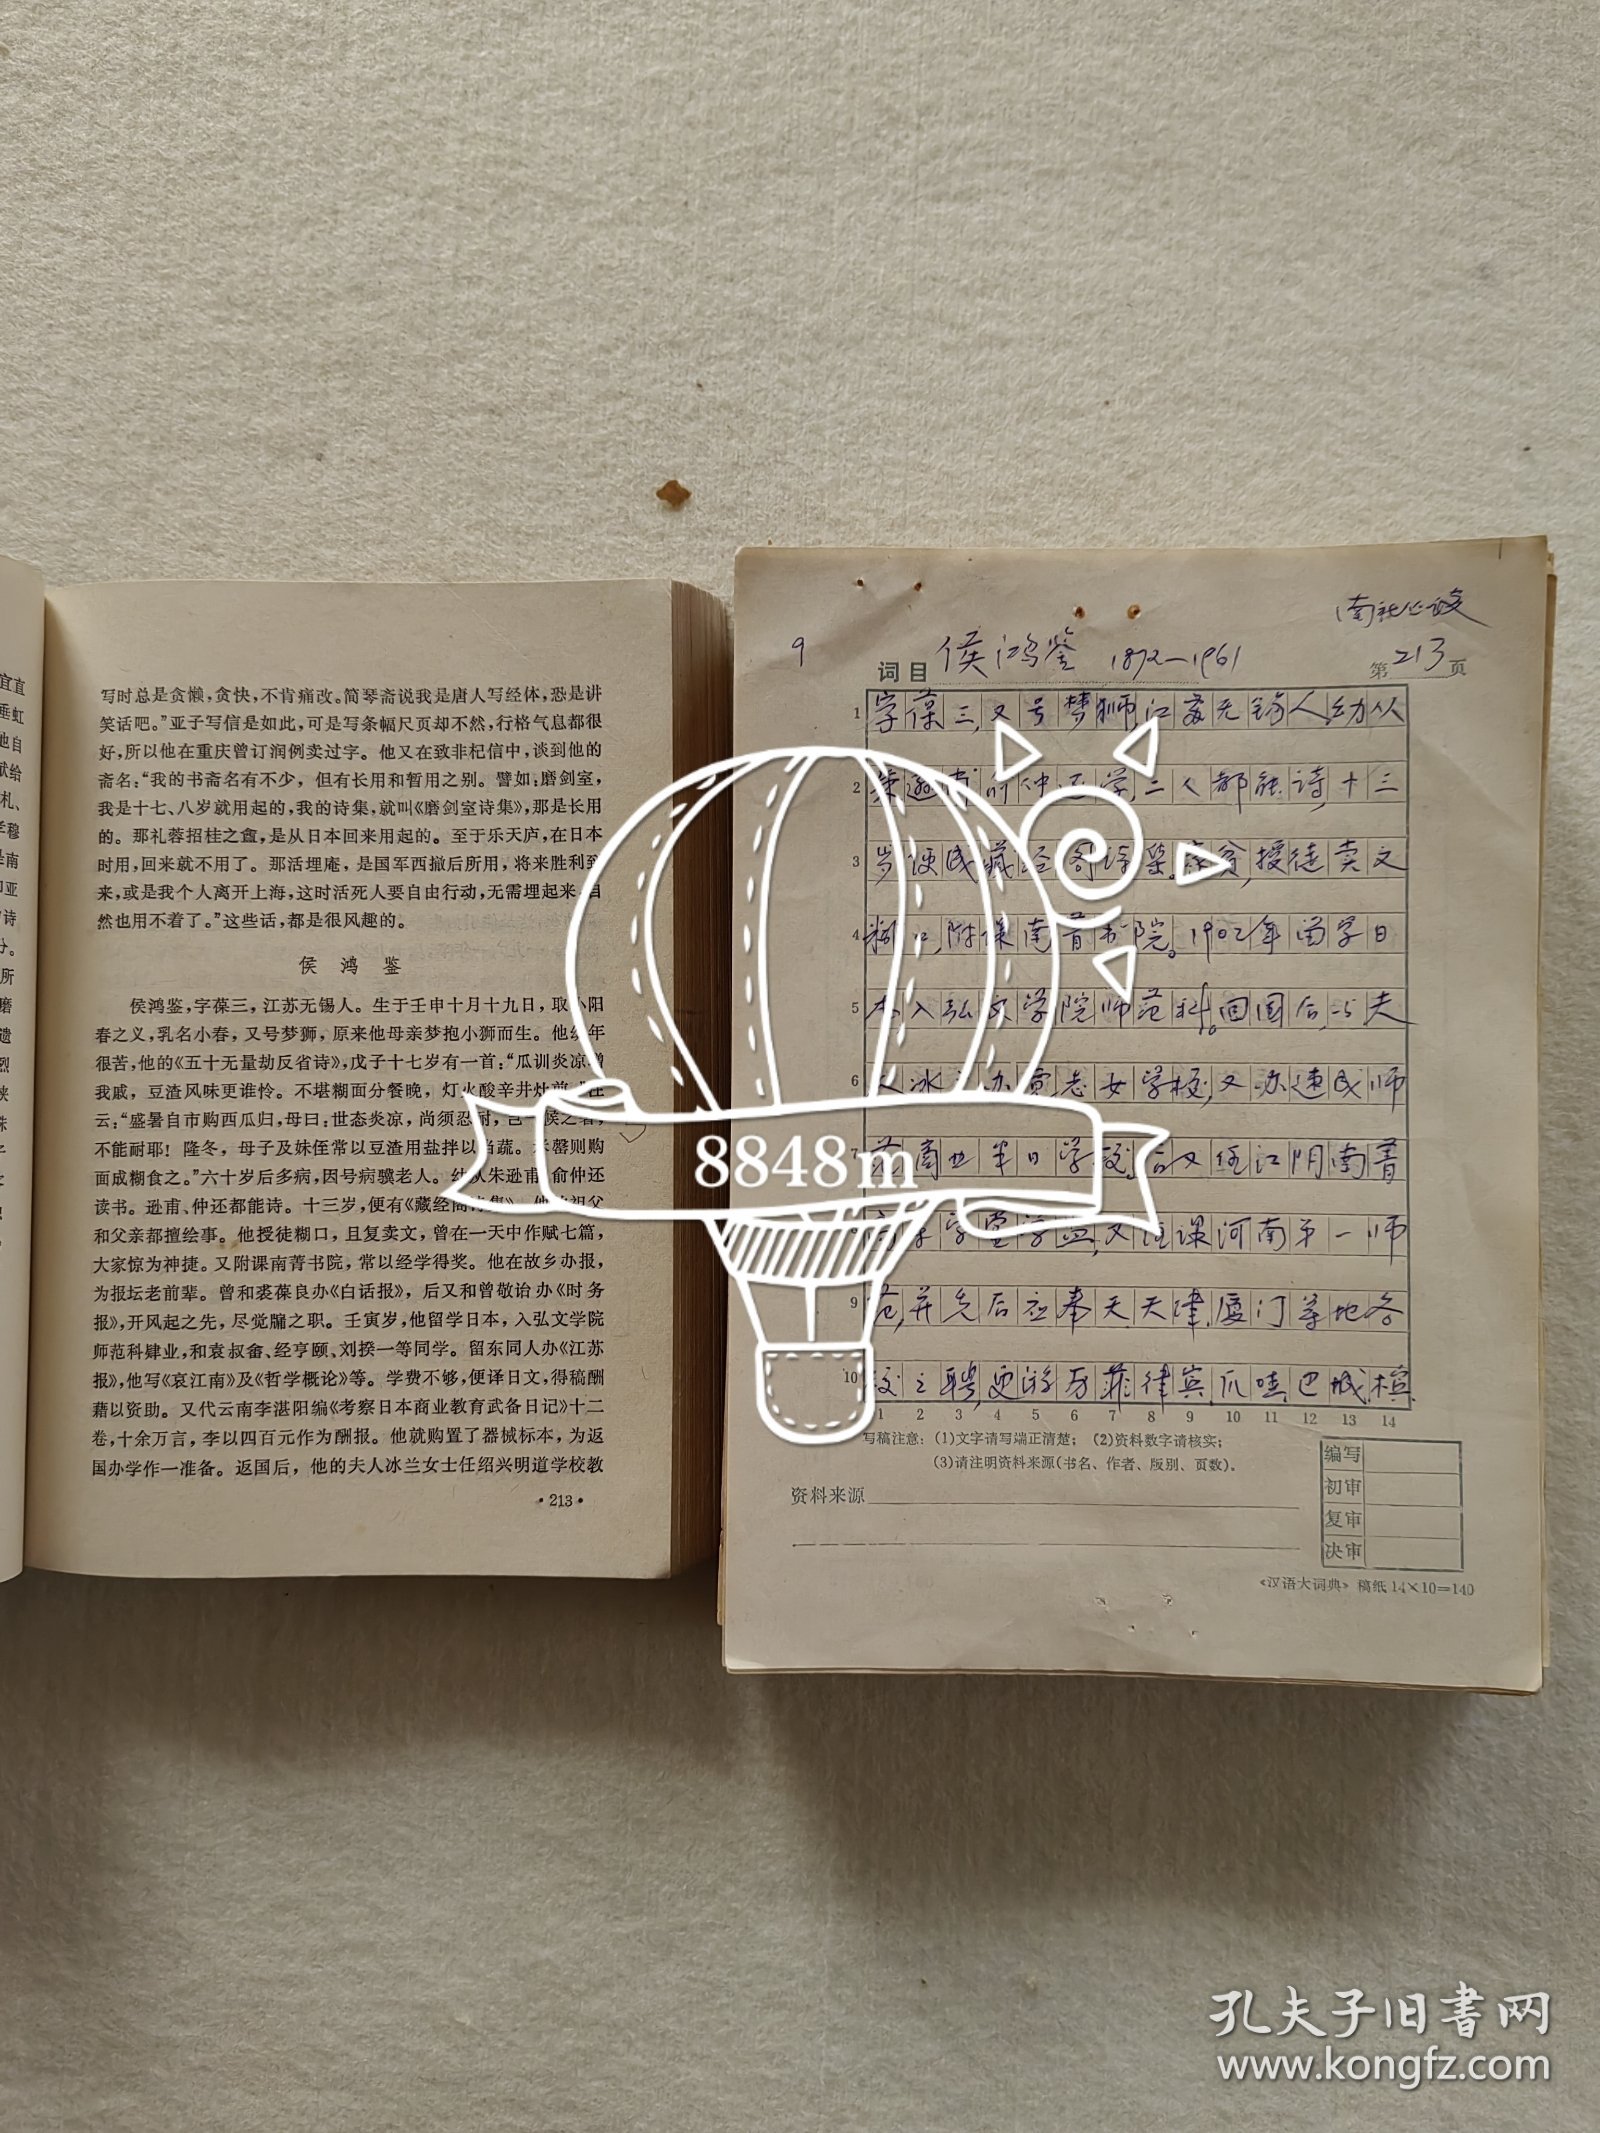 宜直
垂虹
他自
献给
札、
学穆
是南
和亚
诗
分。
所
磨
遗
烈
侠
殊
写时总是贪懒，贪快，不肯痛改。简琴斋说我是唐人写经体，恐是讲
笑话吧。”亚子写信是如此，可是写条幅尺页却不然，行格气息都很
好，所以他在重庆曾订润例卖过字。他又在致非杞信中，谈到他的
斋名：“我的书斋名有不少，但有长用和暂用之别。譬如：磨剑室，
我是十七、八岁就用起的，我的诗集，就叫《磨剑室诗集》，那是长用
的。那礼蓉招桂之龛，是从日本回来用起的。至于乐天庐，在日本
时用，回来就不用了。那活埋庵，是国军西撤后所用，将来胜利到
来，或是我个人离开上海，这时活死人要自由行动，无需埋起来，自
然也用不着了。”这些话，都是很风趣的。
侯鸿鉴
侯鸿鉴，字葆三，江苏无锡人。生于壬申十月十九日，取小阳
春之义，乳名小春，又号梦狮，原来他母亲梦抱小狮而生。他幼年
很苦，他的《五十无量劫反省诗》，戊子十七岁有一首：“瓜训炎凉增
我戚，豆渣风味更谁怜。不堪糊面分餐晚，灯火酸辛井灶前。”注
云：“盛暑自市购西瓜归，母曰：世态炎凉，尚须忍耐，岂一候之暑，
不能耐耶！隆冬，母子及妹侄常以豆渣用盐拌以当蔬。米罄则购
面成糊食之。”六十岁后多病，因号病骥老人。幼从朱逊甫、俞仲还
读书。逊甫、仲还都能诗。十三岁，便有《藏经阁诗集》。他的祖父
和父亲都擅绘事。他授徒糊口，且复卖文，曾在一天中作赋七篇，
大家惊为神捷。又附课南菁书院，常以经学得奖。他在故乡办报，
为报坛老前辈。曾和裘葆良办《白话报》，后又和曾敬诒办《时务
报》，开风起之先，尽觉牖之职。壬寅岁，他留学日本，入弘文学院
师范科肄业，和袁叔畬、经亨颐、刘揆一等同学。留东同人办《江苏
报》，他写《哀江南》及《哲学概论》等。学费不够，便译日文，得稿酬
藉以资助。又代云南李湛阳编《考察日本商业教育武备日记》十二
卷，十余万言，李以四百元作为酬报。他就购置了器械标本，为返
国办学作一准备。返国后，他的夫人冰兰女士任绍兴明道学校教
·213·
南社丛谈
9
词目 侯鸿鉴 1872—1961 第213页
1 字葆三，又号梦狮，江苏无锡人，幼从
2 朱逊甫、俞仲还学，二人都能诗，十三
3 岁便成藏经阁诗集。家贫，授徒卖文
4 糊口，附课南菁书院。1902年留学日
5 本入弘文学院师范科。回国后，与夫
6 人冰兰办竞志女学校，又办速成师
7 范，商业半日学校，后又任江阴南菁
8 高等学堂学监，又任课河南第一师
9 范，并先后应奉天、天津、厦门等地各
10 校之聘，更游历菲律宾、爪哇、巴城、槟
1 2 3 4 5 6 7 8 9 10 11 12 13 14
写稿注意：(1)文字请写端正清楚；(2)资料数字请核实；
(3)请注明资料来源(书名、作者、版别、页数)。
资料来源
编写
初审
复审
决审
《汉语大词典》稿纸 14×10=140
8848m
孔夫子旧书网
www.kongfz.com